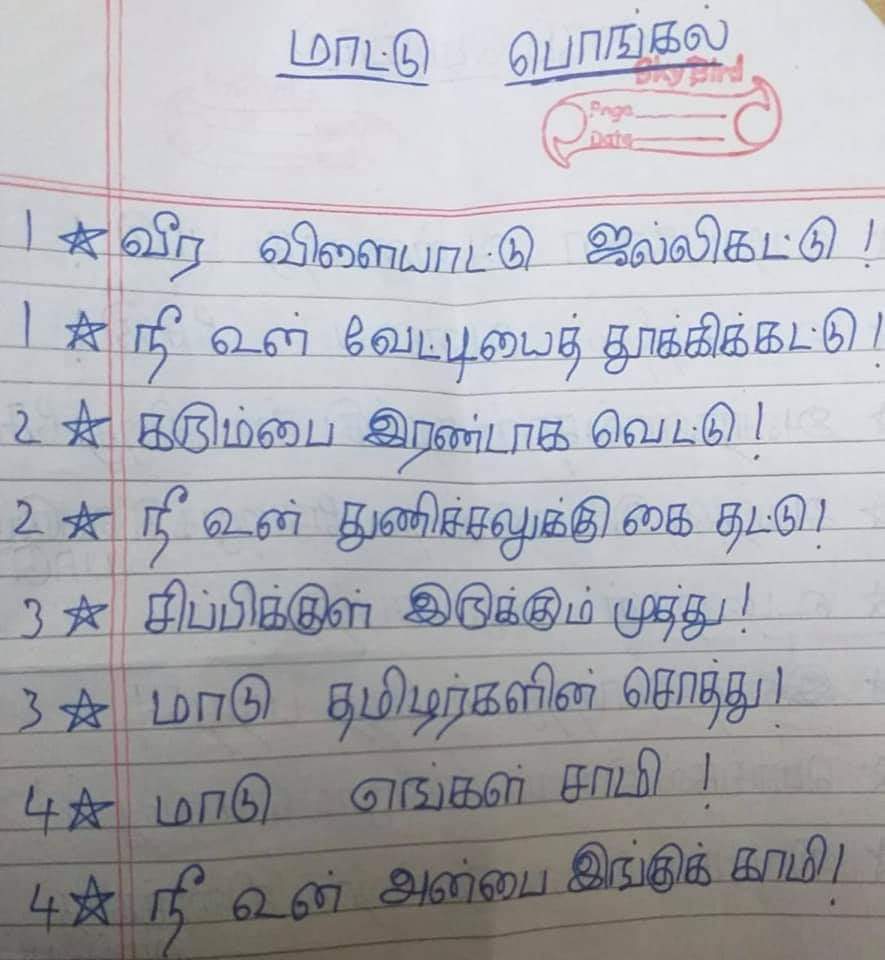 மாட்டு பொங்கல்
Sky Bird
Page
Date
1 ☆ வீர விளையாட்டு ஜல்லிகட்டு !
1 ☆ நீ உன் வேட்டியைத் தூக்கிக்கட்டு !
2 ☆ கரும்பை இரண்டாக வெட்டு !
2 ☆ நீ உன் துணிச்சலுக்கு கை தட்டு !
3 ☆ சிப்பிக்குள் இருக்கும் முத்து !
3 ☆ மாடு தமிழர்களின் சொத்து !
4 ☆ மாடு எங்கள் சாமி !
4 ☆ நீ உன் அன்பை இங்குக் காமி !